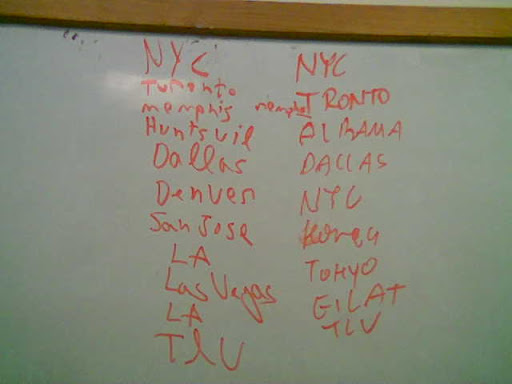 NYC
Toronto
memphis memphis
Huntsvil
Dallas
Denver
San Jose
LA
Las Vegas
LA
TLV
NYC
TRONTO
ALBAMA
DALLAS
NYC
Korea
TOKYO
EILAT
TLV